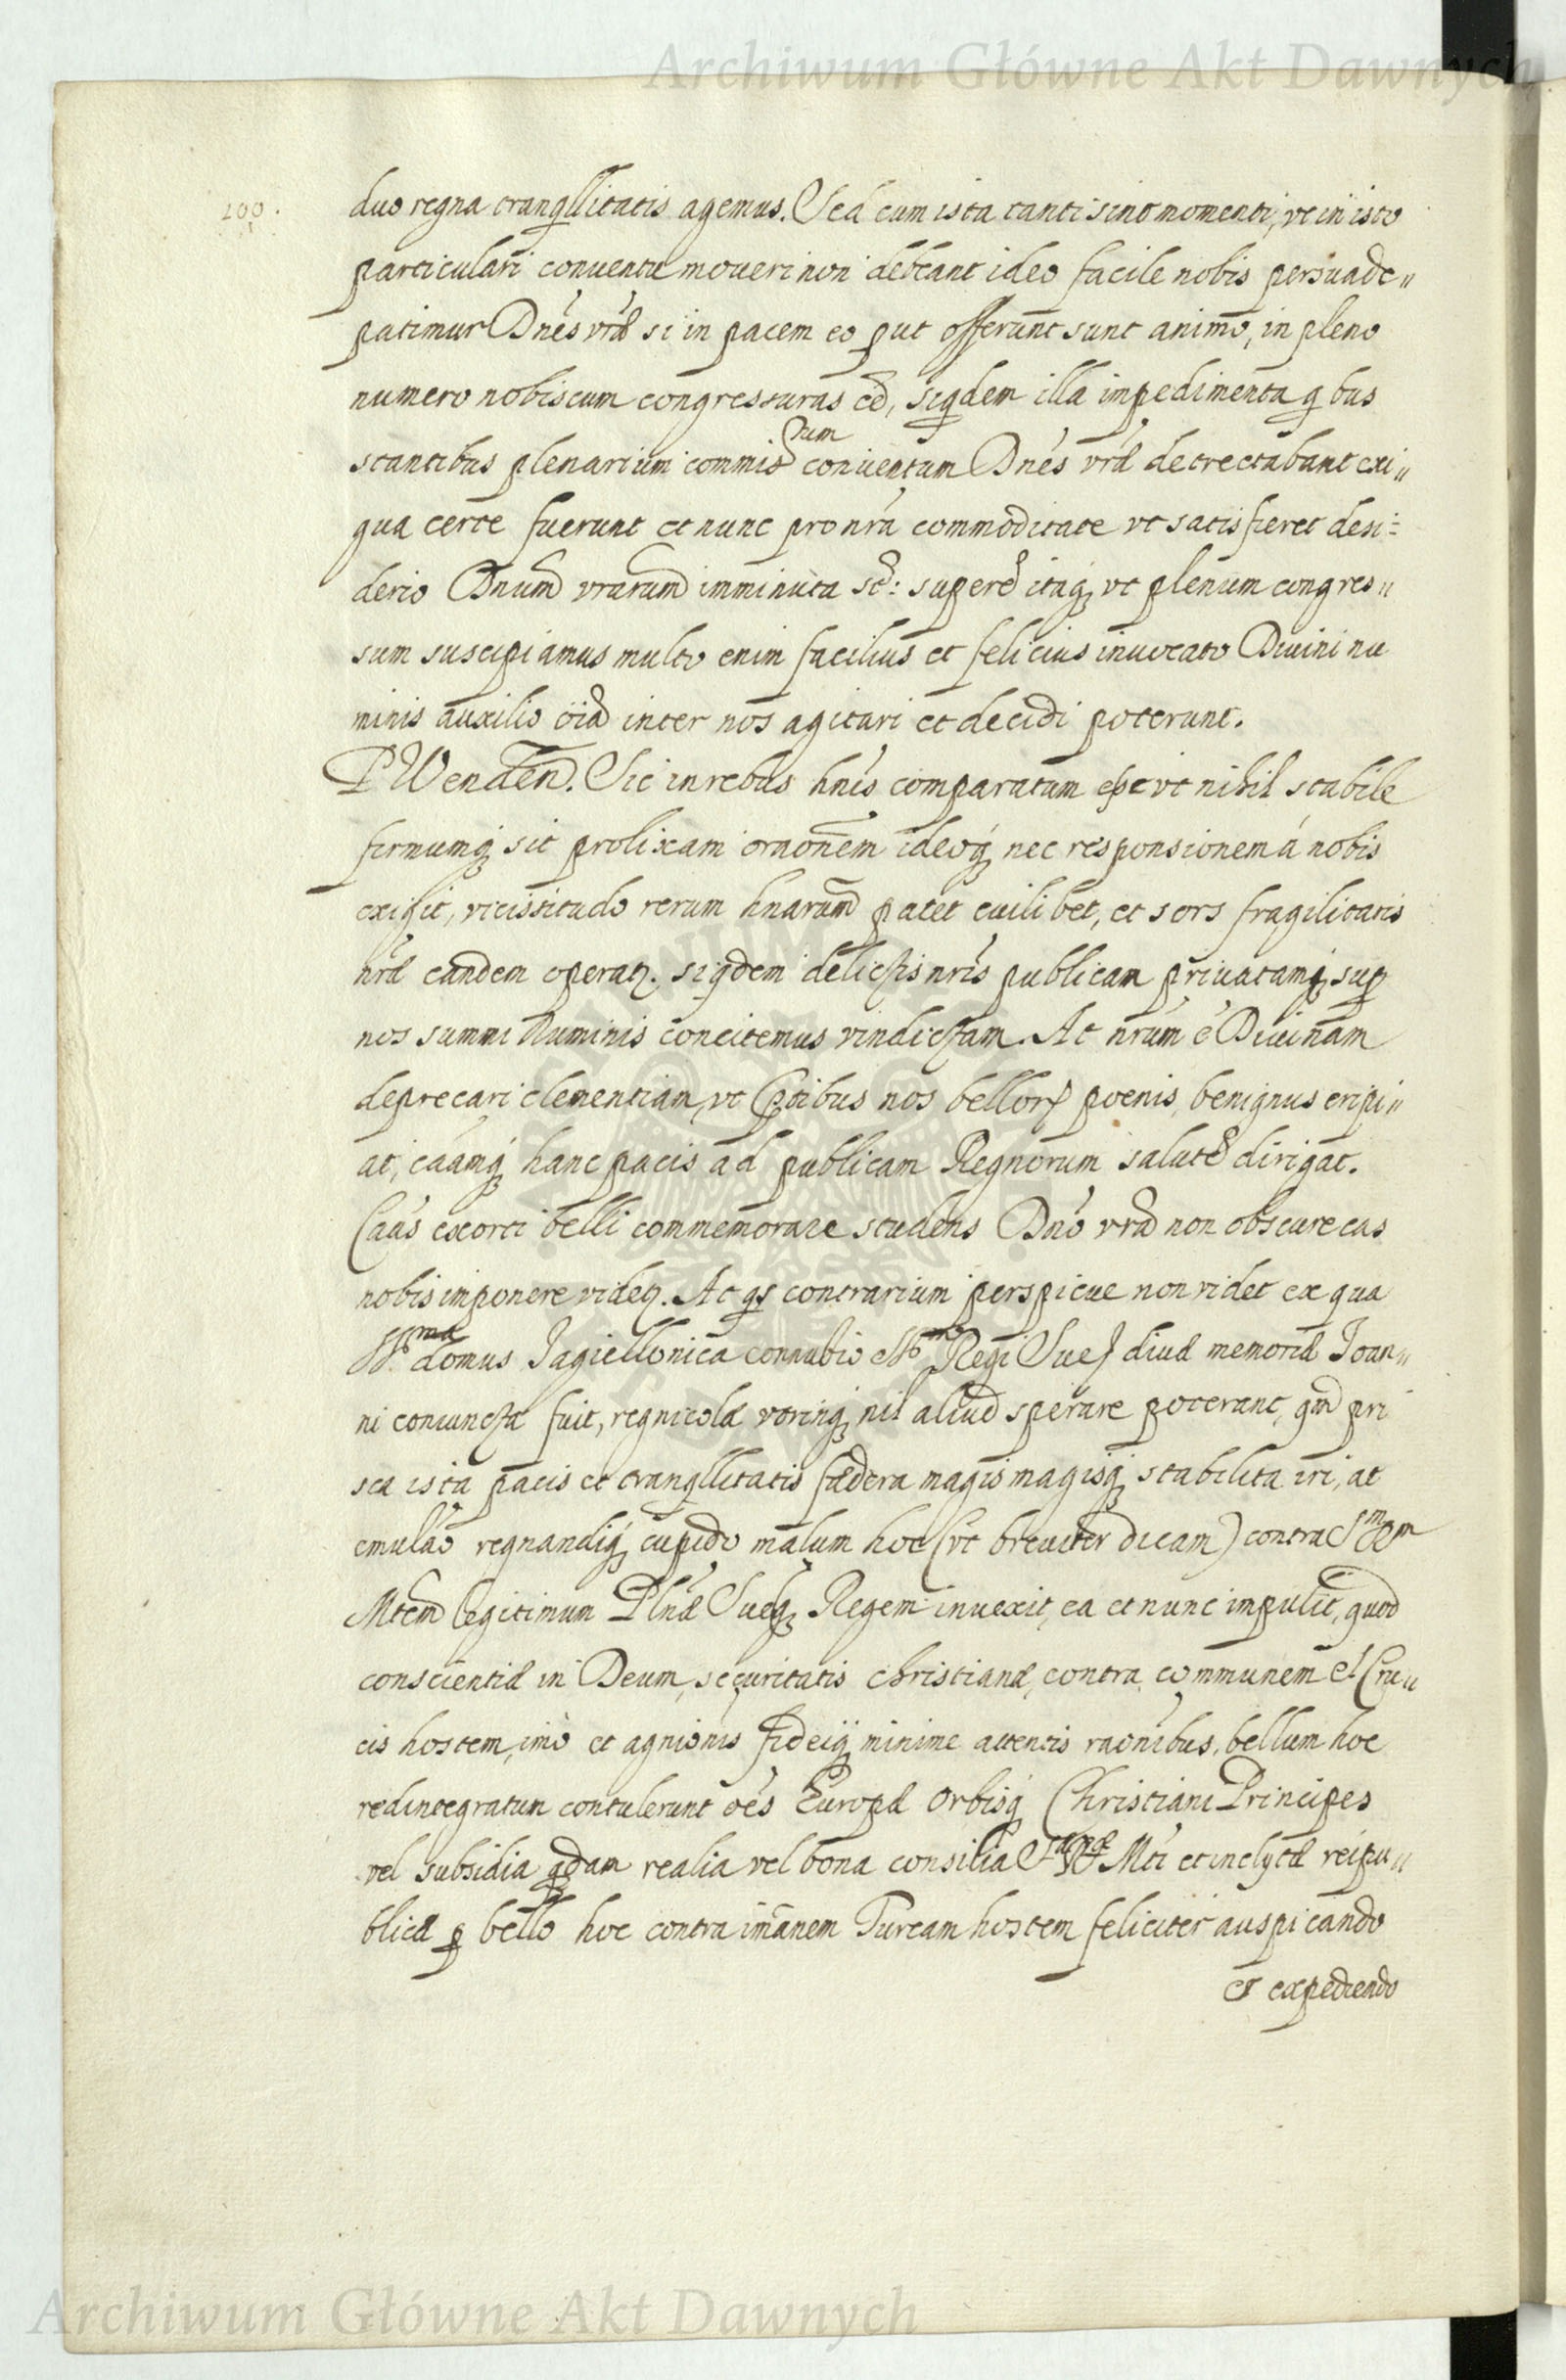 Archiwum Główne Akt Dawnych
200.
duo regna tranqllitatis agemus. Sed cum ista tanti sint momenti, vt in isto
particulari conuentu moueri non debeant ideo facile nobis persuade„
patimur Dnẽs vrãs si in pacem eo put offerunt sunt animo, in pleno
numero nobiscum congressuras eẽ, siqdem illa impedimenta qbus
stantibus plenarium commissrum conuentum Dnẽs vrã detrectabant exi„
gua certe fuerunt et nunc pro nrã commoditate vt satisfieret desi-
derio Dnum vrarum imminuta st: superẽ itaq, vt plenum congres„
sum suscipiamus multo enim facilius et felicius inuocato Diuini nu
minis auxilio oĩa inter nos agitari et decidi poterunt.
P Wenden. Sic in rebus hnis comparatum est vt nihil stabile
firmumq sit prolixam oraonem ideoq nec responsionem á nobis
exigit, vicissitudo rerum hnarum patet cuilibet, et sors fragilitatis
nrã eandem operat. siqdem delictis nris publicam priuatamq sup
nos summi Numinis concitemus vindictam. At nrum è Diuinam
deprecari clementiam, vt p̃tibus nos bellor poenis, benignus eripi„
at, caãmq hanc pacis ad publicam Regnorum salutẽ dirigat.
Caãs exorti belli commemorare studens Dnõ vrã non obscure eas
nobis imponere videt. At qs contrarium perspicue non videt ex qua
Sma domus Jagiellonica connubio Smo Regi Suec diuæ memoriæ Joan„
ni coniuncta fuit, regnicolæ vtrinq nil aliud sperare poterant, qm pri
sca ista pacis et tranqllitatis fædera magis magisq stabilita iri, at
emulaõ regnandiq cupido malum hoc (vt breuiter dicam) contra Smam
Mtem legitimum Plnæ Sueq Regem inuexit, ea et nunc impulit, quod
conscientiæ in Deum, securitatis christianæ, contra communem et Cru„
cis hostem, imò et agnionis fideiq minime attentis raonibus, bellum hoc
redintegratum contulerunt oẽs Europæ orbisq Christiani Principes
vel subsidia qdam realia vel bona consilia Smæ Mti et inclytæ reipu„
blicæ p bello hoc contra imanem Turcam hostem feliciter auspicando
et expediendo
Archiwum Główne Akt Dawnych